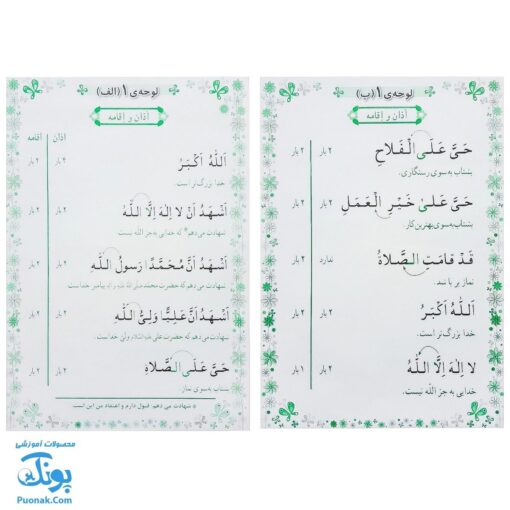 لوحه‌ی ۱ (الف)
اذان و اقامه
اذان
اقامه
اَللّٰهُ اَکْبَرُ
۴ بار
۲ بار
خدا بزرگ‌تر است.
اَشْهَدُ اَنْ لا اِلٰهَ اِلَّا اللّٰهُ
۲ بار
۲ بار
شهادت می‌دهم* که خدایی به‌جز الله نیست
اَشْهَدُ اَنَّ مُحَمَّدًا رَسولُ اللّٰهِ
۲ بار
۲ بار
شهادت می‌دهم که حضرت محمد پیامبر خداست.
اَشْهَدُ اَنَّ عَلِیًّا وَلِیُّ اللّٰهِ
۲ بار
۲ بار
شهادت می‌دهم که حضرت علی ولی خداست.
حَیَّ عَلَی الصَّلاةِ
۲ بار
۲ بار
بشتاب به‌سوی نماز
* شهادت می دهم: قبول دارم و اعتقاد من این است
لوحه‌ی ۱ (ب)
اذان و اقامه
حَیَّ عَلَی الْفَلاحِ
۲ بار
۲ بار
بشتاب به‌سوی رستگاری.
حَیَّ عَلیٰ خَیْرِ الْعَمَلِ
۲ بار
۲ بار
بشتاب به‌سوی بهترین کار
قَدْ قامَتِ الصَّلاةُ
ندارد
۲ بار
نماز بر پا شد.
اَللّٰهُ اَکْبَرُ
۲ بار
۲ بار
خدا بزرگ‌تر است.
لا اِلٰهَ اِلَّا اللّٰهُ
۲ بار
۱ بار
خدایی به جز الله نیست.
محصولات آموزشی
پونک
Puonak.Com